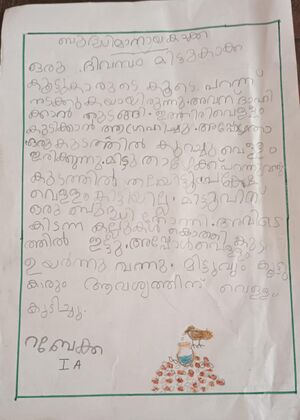 ബുദ്ധിമാനായ കാക്ക
ഒരു ദിവസം മിട്ടുകാക്ക
കൂട്ടുകാരുടെ കൂടെ പറന്ന്
നടക്കുകയായിരുന്നു. അവന് ദാഹി
ക്കാൻ തുടങ്ങി. ഇത്തിരിവെള്ളം
കുടിക്കാൻ ആഗ്രഹിച്ചു. അപ്പോഴതാ
ഒരുകുടത്തിൽ കുറച്ചു വെള്ളം
ഇരിക്കുന്നു. മിട്ടു താഴേക്ക് പറന്നുവന്നു
കുടത്തിൽ തലയിട്ടു. പക്ഷേ
വെള്ളം കിട്ടിയില്ല. മിട്ടുവിന്
ഒരു ബുദ്ധി
കിടന്ന കല്ലുകൾ കൊത്തി
ത്തിൽ ഇട്ടു. അപ്പോൾ വെള്ളം
ഉയർന്നു വന്നു. മിട്ടുവും കൂട്ടു
കാരും ആവശ്യത്തിന് വെള്ളം
കുടിച്ചു.
റബേക്ക
I A